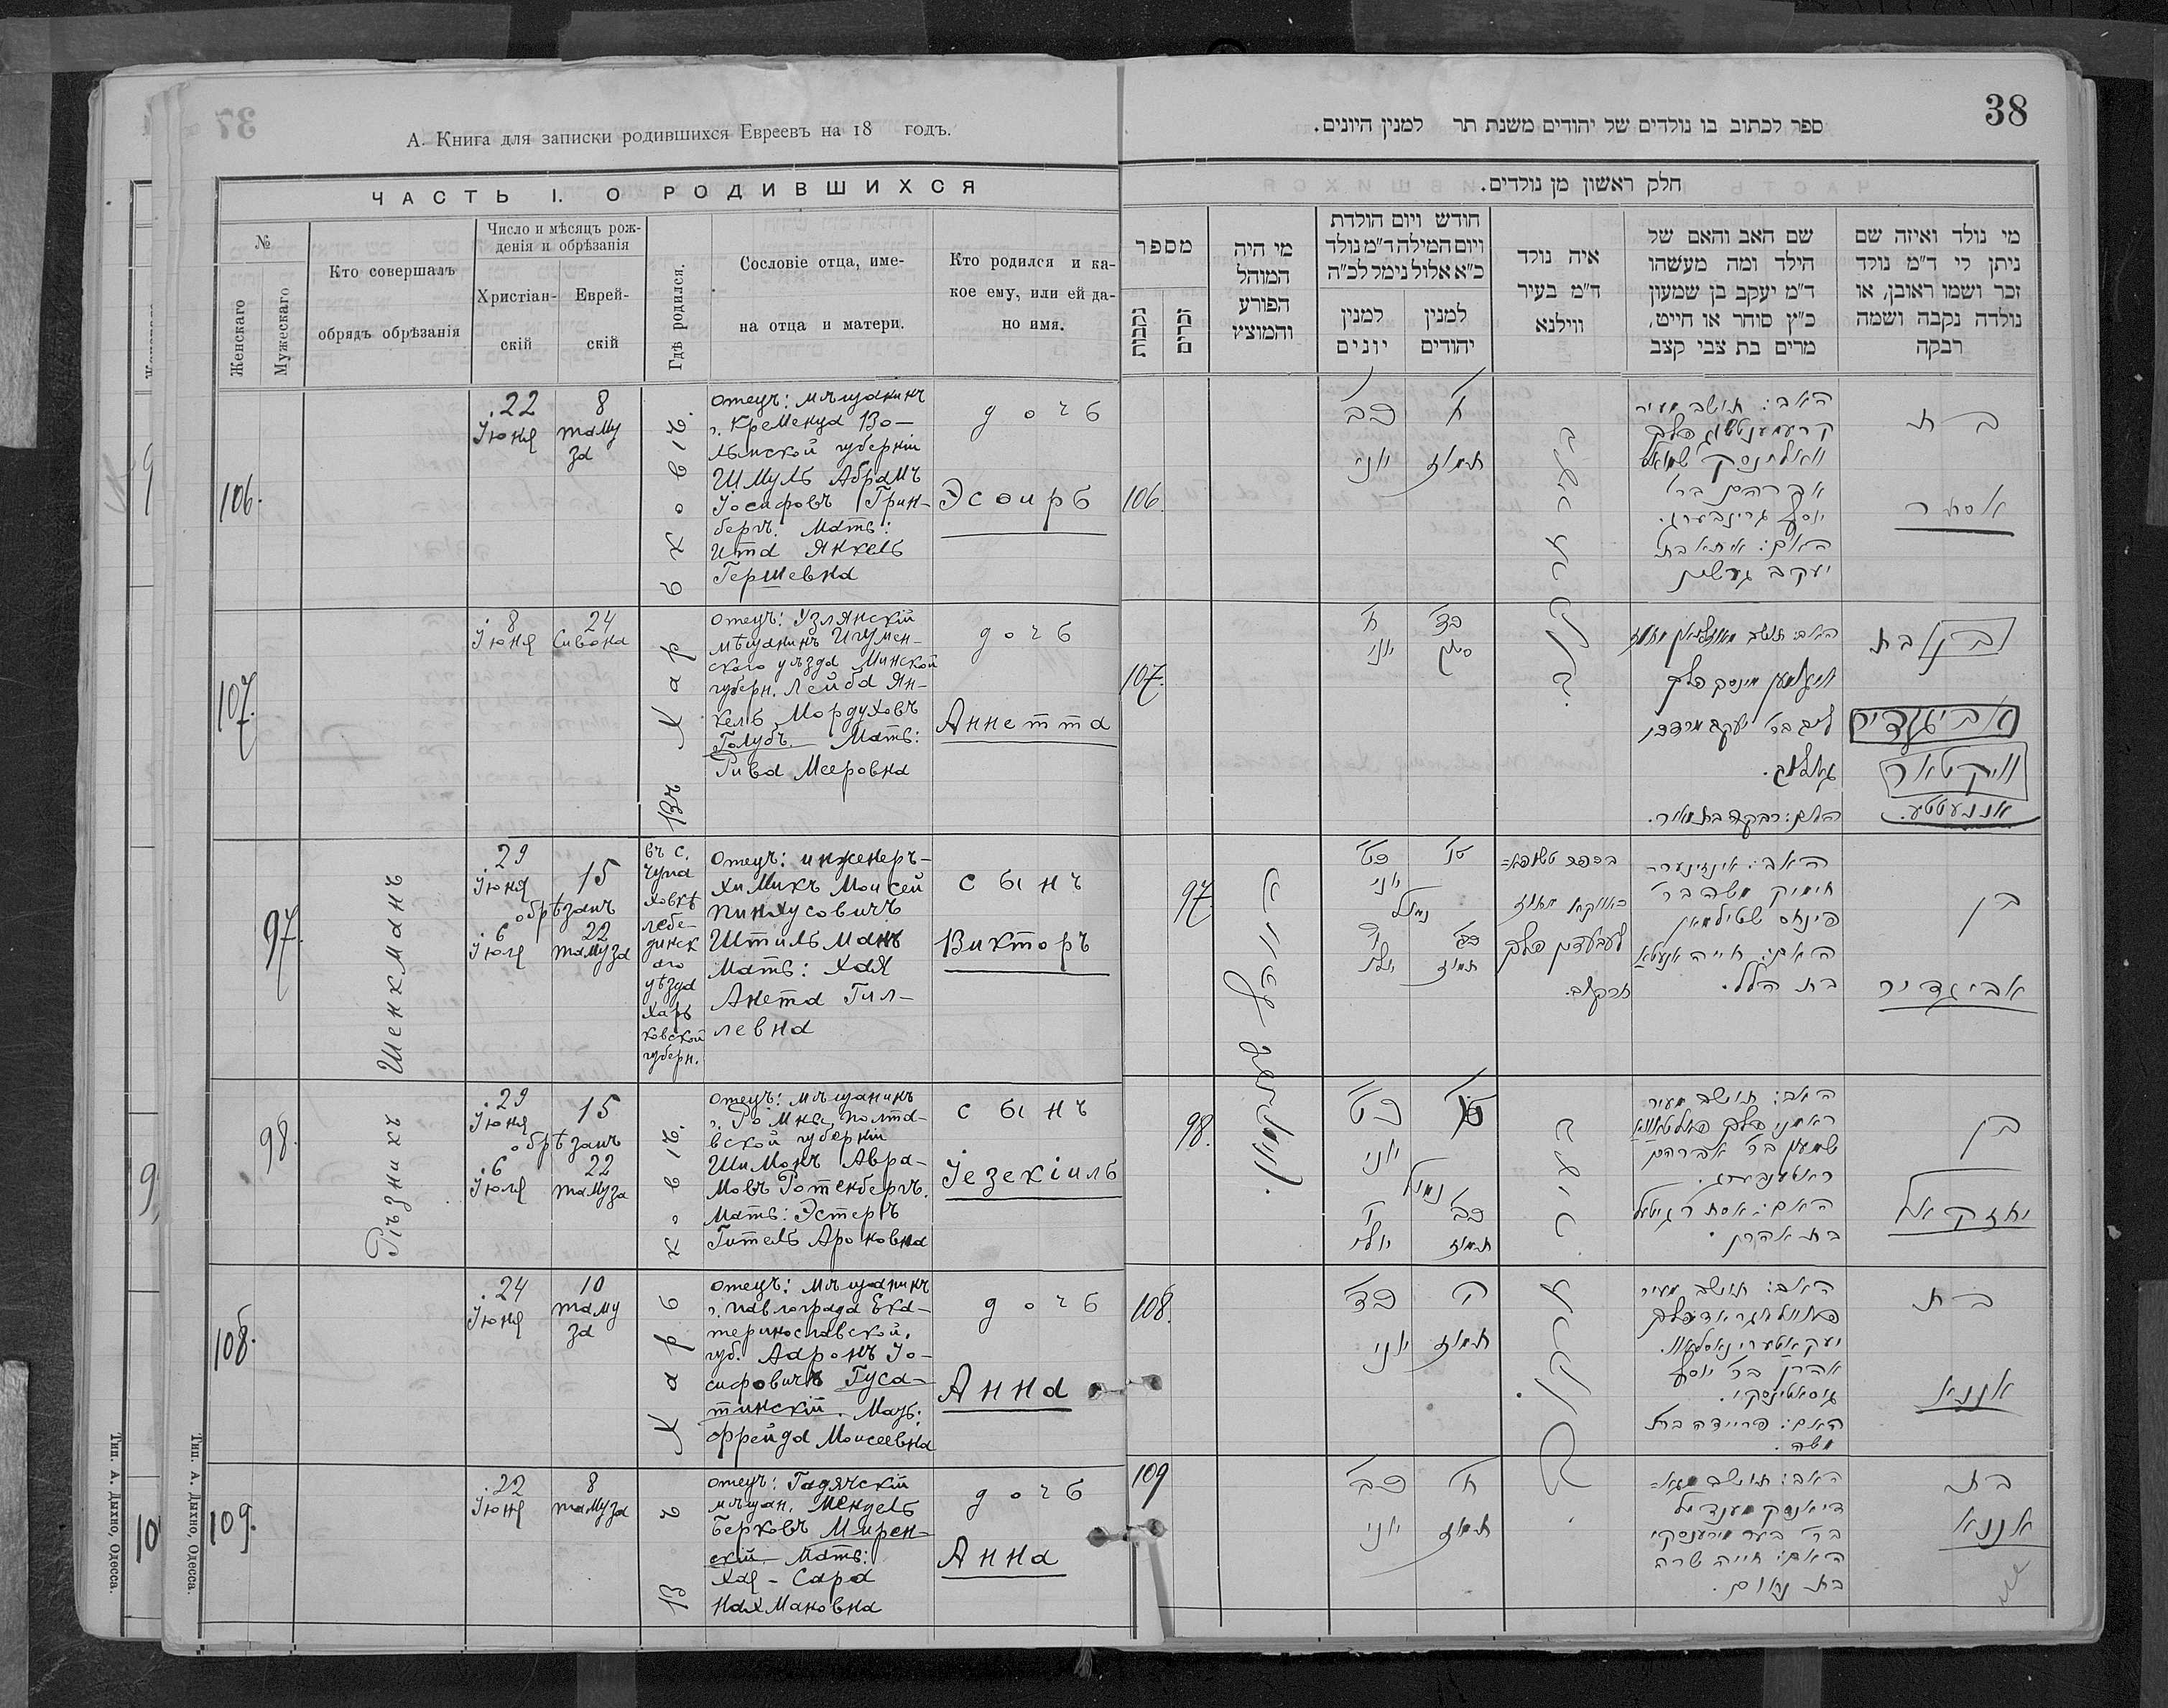 37
А. Книга для записки родившихся Евреевъ на 18 годъ.
ЧАСТЬ I. О РОДИВШИХСЯ
№
Женскаго
Мужескаго
Кто совершалъ
обрядъ обрѣзанія
Число и мѣсяцъ рож-
денія и обрѣзанія
Христіан-
скій
Еврей-
скій
Гдѣ родился.
Сословіе отца, име-
на отца и матери.
Кто родился и ка-
кое ему, или ей да-
но имя.
106.
22
Іюня
8
таму
за
отецъ: мѣщанинъ
г. Кременца Во-
лынской губерніи
Шмуль Абрамъ
Іосифовъ Грин-
бергъ. Мать:
Ита Янкель
Гершевна
дочь
Эсѳирь
107.
8
Іюня
24
Сивона
отецъ: Узлянскій
мѣщанинъ Игумен-
скаго уѣзда Минской
губерн. Лейба Ян-
кель Мордуховъ
Голубъ. Мать:
Рива Мееровна
дочь
Аннетта
въ Харьковѣ.
97.
Шенкманъ
29
Іюня
15
обрѣзанъ
6
Іюля
22
тамуза
въ с.
Чупа
ховкѣ
лебе-
динск
аго
уѣзда
Харь
ковской
губерн.
Отецъ: инженеръ-
химикъ Моисей
Пинхусовичъ
Штильманъ
Мать: Хая
Анета Гил-
левна
сынъ
Викторъ
98.
Рѣзникъ
29
Іюня
15
обрѣзанъ
6
Іюля
22
тамуза
отецъ: мѣщанинъ
г. Ромны Полта-
вской губерніи
Шимонъ Авра-
мовъ Ротенбергъ.
Мать: Эстеръ
Гитель Ароновна
сынъ
Іезекіиль
108.
24
Іюня
10
таму
за
отецъ: мѣщанинъ
г. Павлограда Ека-
теринославской
губ. Ааронъ Іо-
сифовичъ Гуса-
тинскій. Мать:
Фрейда Моисеевна
дочь
Анна
109.
22
Іюня
8
тамуза
отецъ: Гадячскій
мѣщан. Мендель
Берковъ Мирен-
скій. Мать:
Хая-Сара
Нахмановна
дочь
Анна
въ Харьковѣ.
Тип. А. Дихно, Одесса.
Тип. А. Дихно, Одесса.
38
ספר לכתוב בו נולדים של יהודים משנת תר למנין היונים.
חלק ראשון מן נולדים.
מספר
נקבות
זכרים
מי היה
המוהל
הפורע
והמוציץ
חודש ויום הולדת
ויום המילה ד"מ נולד
כ"א אלול נימל לכ"ה
למנין
יונים
למנין
יהודים
איה נולד
ד"מ בעיר
ווילנא
שם האב והאם של
הילד ומה מעשהו
ד"מ יעקב בן שמעון
כ"ץ סוחר או חייט,
מרים בת צבי קצב
מי נולד ואיזה שם
ניתן לי ד"מ נולד
זכר ושמו ראובן, או
נולדה נקבה ושמה
רבקה
106.
כב
יוני
ח
תמוז
האב: תושב מעיר
שמואל
אברהם בר
יוסף גרינבערג.
האם: איטא בת
יעקב גרשון
בת
אסתר
107.
ח
יוני
כד
סיון
מינסק פלך
ליב בר יעקב מרדכי
גאלוב.
האם: רבקה בת מאיר.
בת
אביגדור
וויקטאר
אננעטטע.
97.
כט
יוני
נמול
ו
יולי
טו
כב
תמוז
האב: אינזינער
חימיק משה בר
פינחס שטילמאן
האם: חייה אנעטא
בת הלל.
בן
אביגדור
98.
כט
יוני
נמול
ו
יולי
טו
כב
תמוז
האב: תושב מעיר
ראמני פלך פאלטאווא
שמעון בר אברהם
ראטענבערג.
האם: אסתר גיטל
בת אהרן.
בן
יחזקאל
108.
כד
יוני
י
תמוז
האב: תושב מעיר
יעקאטערינאסלאוו.
אהרן בר יוסף
גוסאטינסקי.
האם: פריידה בת
משה.
בת
אננא
109
כב
יוני
ח
תמוז
האב: תושב
מענדיל
בר בער מירענסקי
האם: חייה שרה
בת נחום.
בת
אננא
בעיר חארקוב.